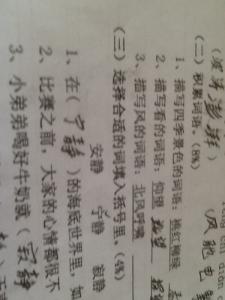 澎湃)
(风驰电
(二)积累词语。(8%)
1、描写四季景色的词语:桃红柳绿
2、描写看的词语:仰望 眺望
3、描写风的词语:北风呼啸
(三)选择合适的词填入括号里。(4%)
安静 宁静 寂静
1、在(宁静)的海底世界里,如
2、比赛之前,大家的心情都很不
3、小弟弟喝好牛奶就(寂静